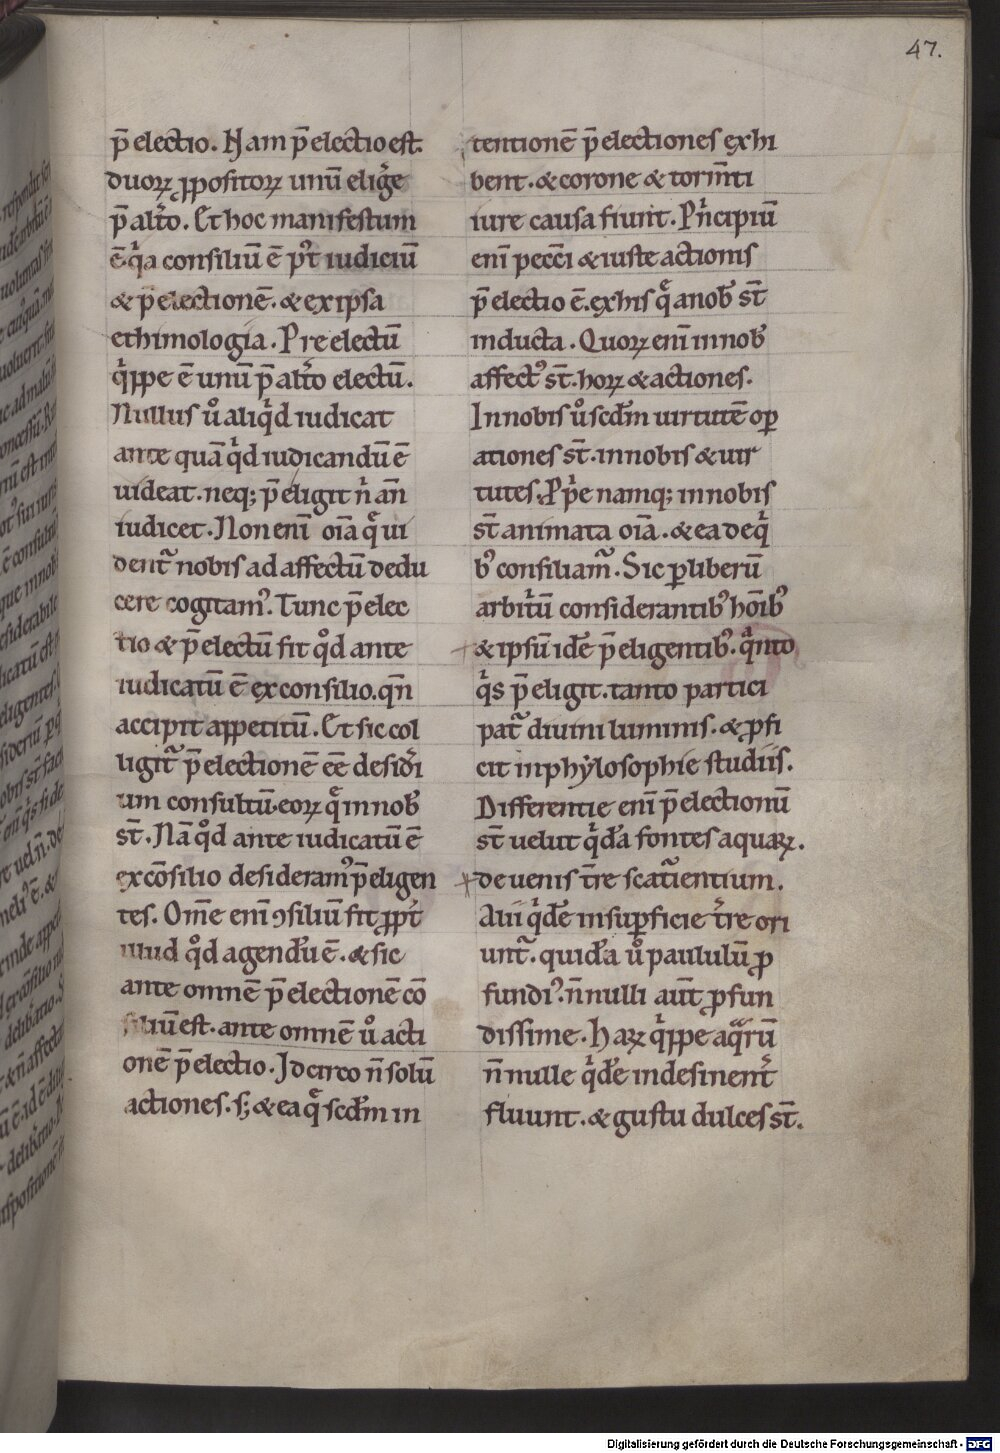 47.
p̄electio. Nam p̄electio est.
duoꝝ ꝓpositoꝝ unū eligͥe
p̄ altͦo. Et hoc manifestum
ē. qͥa consiliū ē pꝰt iudiciū
& p̄electionē. & ex ipsa
ethimologia. Preelectū
qͥppe ē unū p̄ altͦo electū.
Nullus uͦ aliqͥd iudicat
ante quā qͥd iudicandū ē
uideat. neq; p̄eligit nͥ añ
iudicet. Non enī oīa qͣ̄ ui
dent᷑ nobis ad affectū dedu
cere cogitamꝰ. Tunc p̄elec
tio & p̄electū fit qͦd ante
iudicatū ē ex consilio. qn̄
accipit appetitū. Et sic col
ligit᷑ p̄electionē eē desidͥi
um consultū. eoꝝ qͣ̄ in nobꝰ
st̄. Nā qͦd ante iudicatū ē
ex cōsilio desideramꝰ p̄eligen
tes. Om̄e enī ꝯsiliū fit ꝓpt̄
illud qͦd agendū ē. & sic
ante omnē p̄electionē cō
siliū est. ante omnē uͦ acti
onē p̄electio. Idcirco n̄ solū
actiones. s; & ea qͣ̄ scd̄m in
tentionē p̄electiones exhi
bent. & corone & torm̄ti
iure causa fiunt. Pͥncipiū
enī pecc̄i & iuste actionis
p̄electio ē. ex his qͣ̄ a nobꝰ st̄
inducta. Quoꝝ enī in nobꝰ
affectꝰ st̄. hoꝝ & actiones.
In nobis uͦ scd̄m uirtutē oꝑ
ationes st̄. in nobis & uir
tutes. Ppͥe namq; in nobis
st̄ animata oīa. & ea de qͥ
bꝰ consiliam᷑. Sic ꝑ liberū
arbitͥū considerantibꝰ hōībꝰ
& ipsū idē p̄eligentibꝰ. qͣnto
qͥs p̄eligit. tanto partici
pat᷑ diuini luminis. & ꝓfi
cit in phẏlosophie studiis.
Differentie enī p̄electionū
st̄ uelut qͥdā fontes aquaꝝ.
de uenis tr̄e scat᷑ientium.
Aui qͥdē in suꝑficie tr̄e ori
unt᷑. quidā uͦ paululū ꝓ
fundiꝰ. n̄nulli aut̄ ꝓfun
dissime. Haꝝ qͥppe aqͣrū
n̄nulle qͥdē indesinent᷑
fluunt. & gustu dulces st̄.
Digitalisierung gefördert durch die Deutsche Forschungsgemeinschaft - DFG